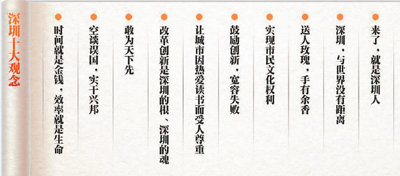 深圳十大观念
时间就是金钱，效率就是生命
空谈误国，实干兴邦
敢为天下先
改革创新是深圳的根、深圳的魂
让城市因热爱读书而受人尊重
鼓励创新，宽容失败
实现市民文化权利
送人玫瑰，手有余香
深圳，与世界没有距离
来了，就是深圳人